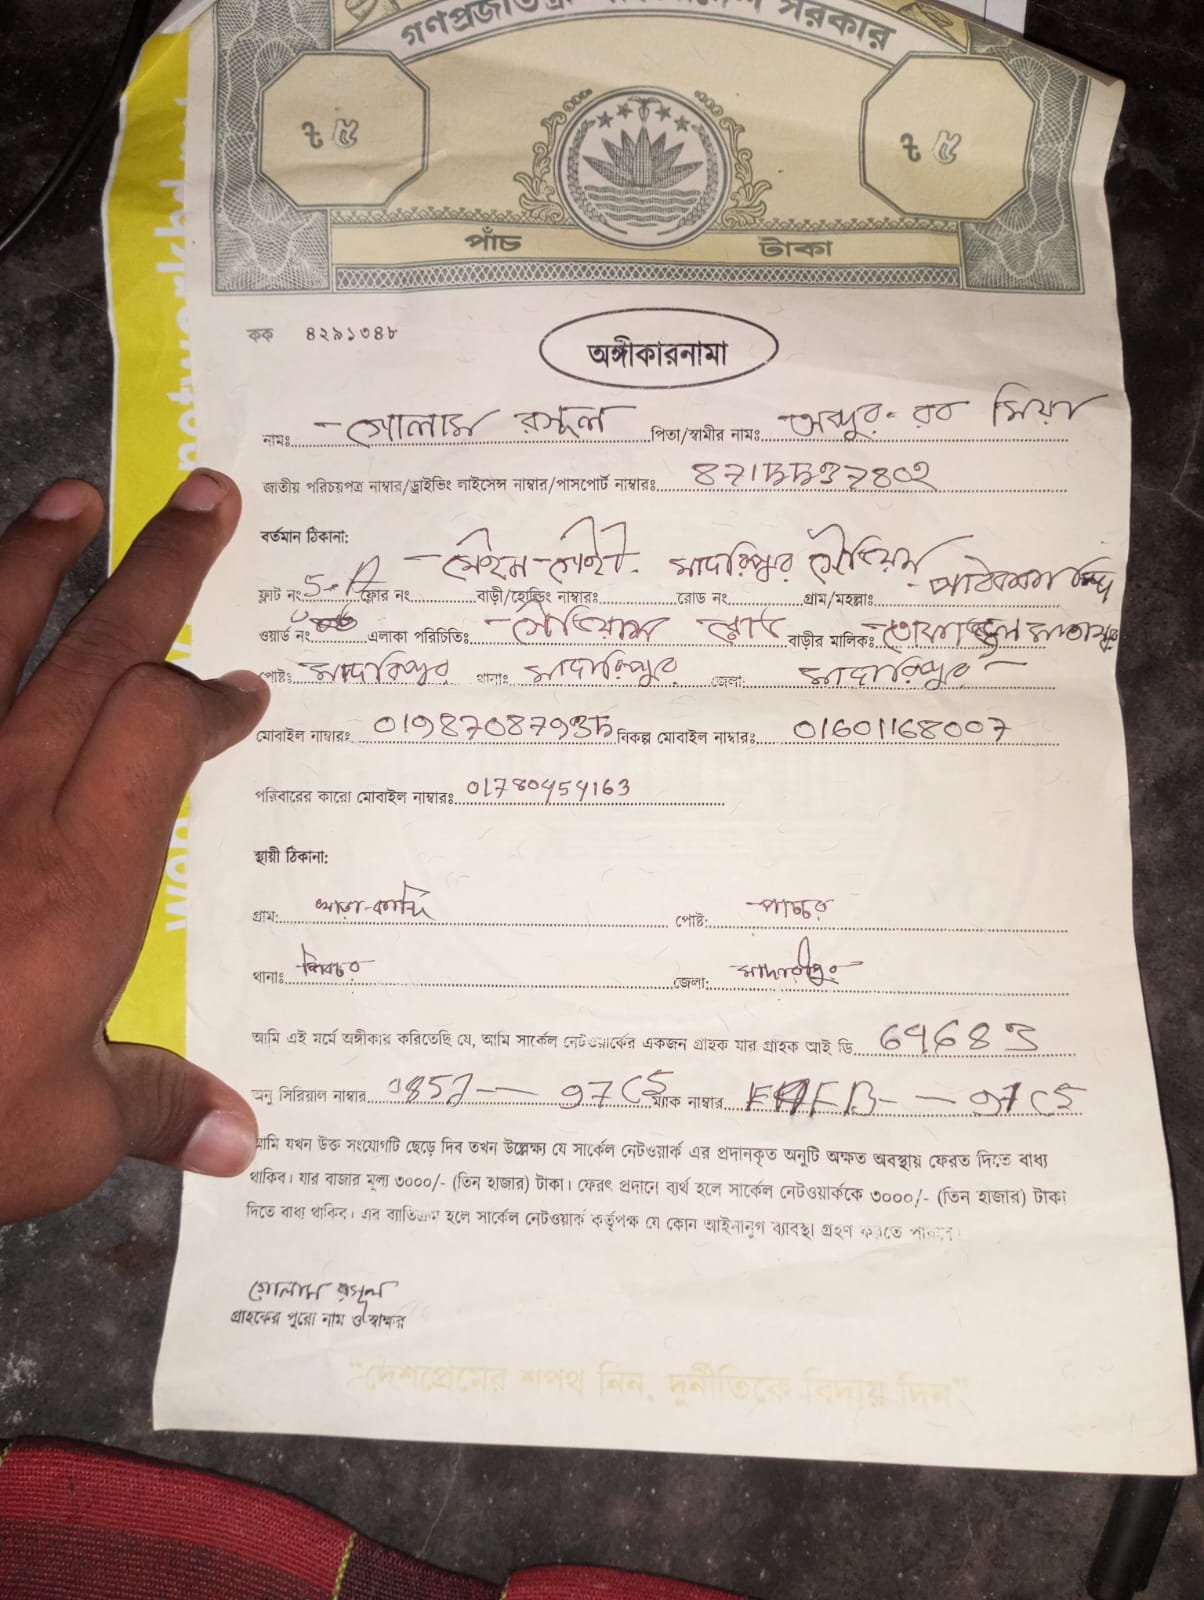 গণপ্রজাতন্ত্রী বাংলাদেশ সরকার
৳ ৫ ৳ ৫
পাঁচ টাকা
কক ৪২৯১৩৪৮
অঙ্গীকারনামা
নামঃ গোলাম রসূল পিতা/স্বামীর নামঃ আব্দুর রব মিয়া
জাতীয় পরিচয়পত্র নাম্বার/ড্রাইভিং লাইসেন্স নাম্বার/পাসপোর্ট নাম্বারঃ
বর্তমান ঠিকানা:
মাদারিপুর
ফ্লাট নং 5-A ফ্লোর নং বাড়ী/হোল্ডিং নাম্বারঃ রোড নং গ্রাম/মহল্লাঃ
ওয়ার্ড নং এলাকা পরিচিতিঃ স্টেডিয়াম রোড বাড়ীর মালিকঃ
পোষ্টঃ মাদারিপুর থানাঃ মাদারিপুর জেলা: মাদারিপুর
মোবাইল নাম্বারঃ বিকল্প মোবাইল নাম্বারঃ 01601168007
পরিবারের কারো মোবাইল নাম্বারঃ 01780454163
স্থায়ী ঠিকানা:
গ্রাম: পোষ্ট: পাচ্চর
থানাঃ শিবচর জেলা: মাদারীপুর
আমি এই মর্মে অঙ্গীকার করিতেছি যে, আমি সার্কেল নেটওয়ার্কের একজন গ্রাহক যার গ্রাহক আই ডি 69683
অনু সিরিয়াল নাম্বার ম্যাক নাম্বার
আমি যখন উক্ত সংযোগটি ছেড়ে দিব তখন উল্লেক্ষ্য যে সার্কেল নেটওয়ার্ক এর প্রদানকৃত অনুটি অক্ষত অবস্থায় ফেরত দিতে বাধ্য
থাকিব। যার বাজার মূল্য ৩০০০/- (তিন হাজার) টাকা। ফেরৎ প্রদানে ব্যর্থ হলে সার্কেল নেটওয়ার্ককে ৩০০০/- (তিন হাজার) টাকা
দিতে বাধ্য থাকিব। এর ব্যতিক্রম হলে সার্কেল নেটওয়ার্ক কর্তৃপক্ষ যে কোন আইনানুগ ব্যাবস্থা গ্রহণ করতে পারবে।
গোলাম রসূল
গ্রাহকের পুরো নাম ও স্বাক্ষর
"দেশপ্রেমের শপথ নিন, দুর্নীতিকে বিদায় দিন"